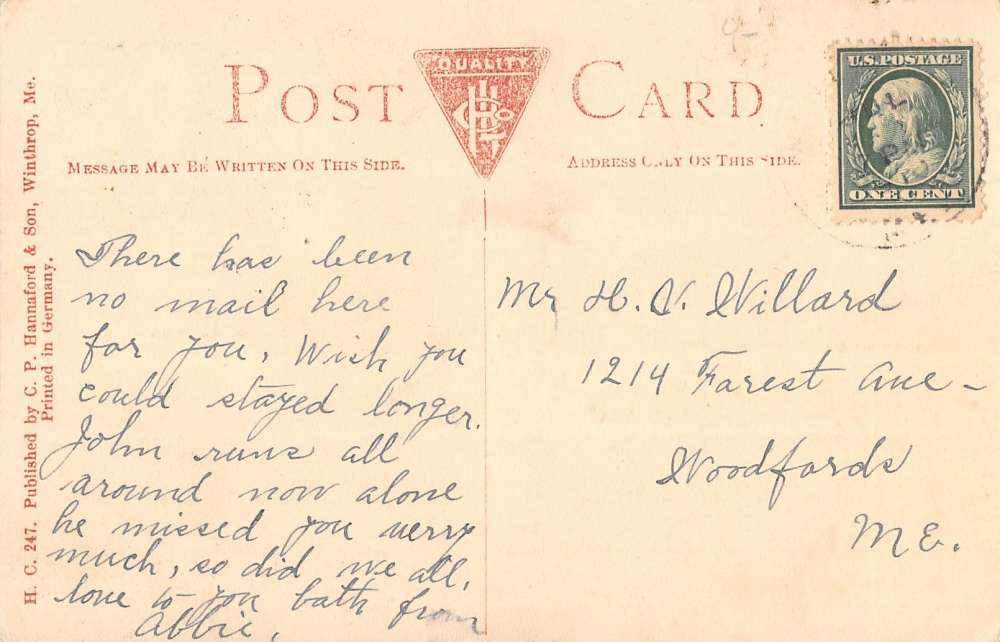 POST CARD
QUALITY
MESSAGE MAY BE WRITTEN ON THIS SIDE.
ADDRESS ONLY ON THIS SIDE.
U.S. POSTAGE
ONE CENT
H. C. 247. Published by C. P. Hannaford & Son, Winthrop, Me.
Printed in Germany.
There has been
no mail here
for you, Wish you
could stayed longer.
John runs all
around now alone
he missed you verry
much, so did we all,
love to you bath from
Abbie,
Mr H. V. Willard
1214 Farest Ave -
Woodfords
ME.